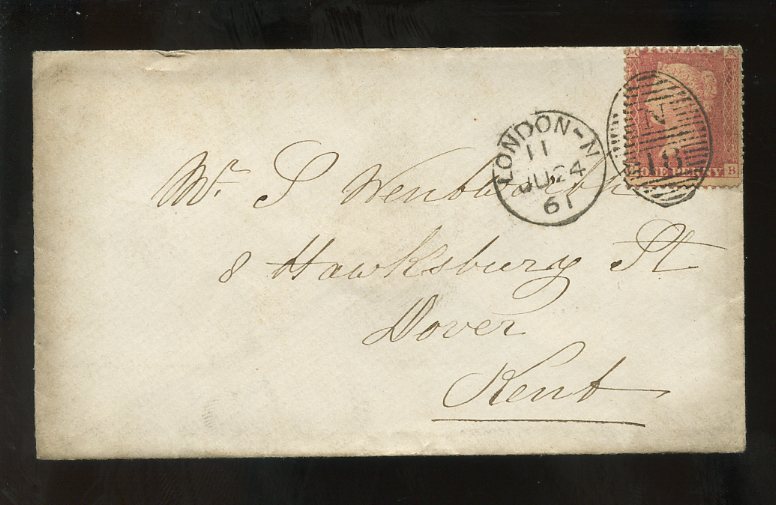 LONDON-N
11
JU 24
61
N
18
ONE PENNY
B
Mr. S Wentworth
8 Hawksbury St
Dover
Kent